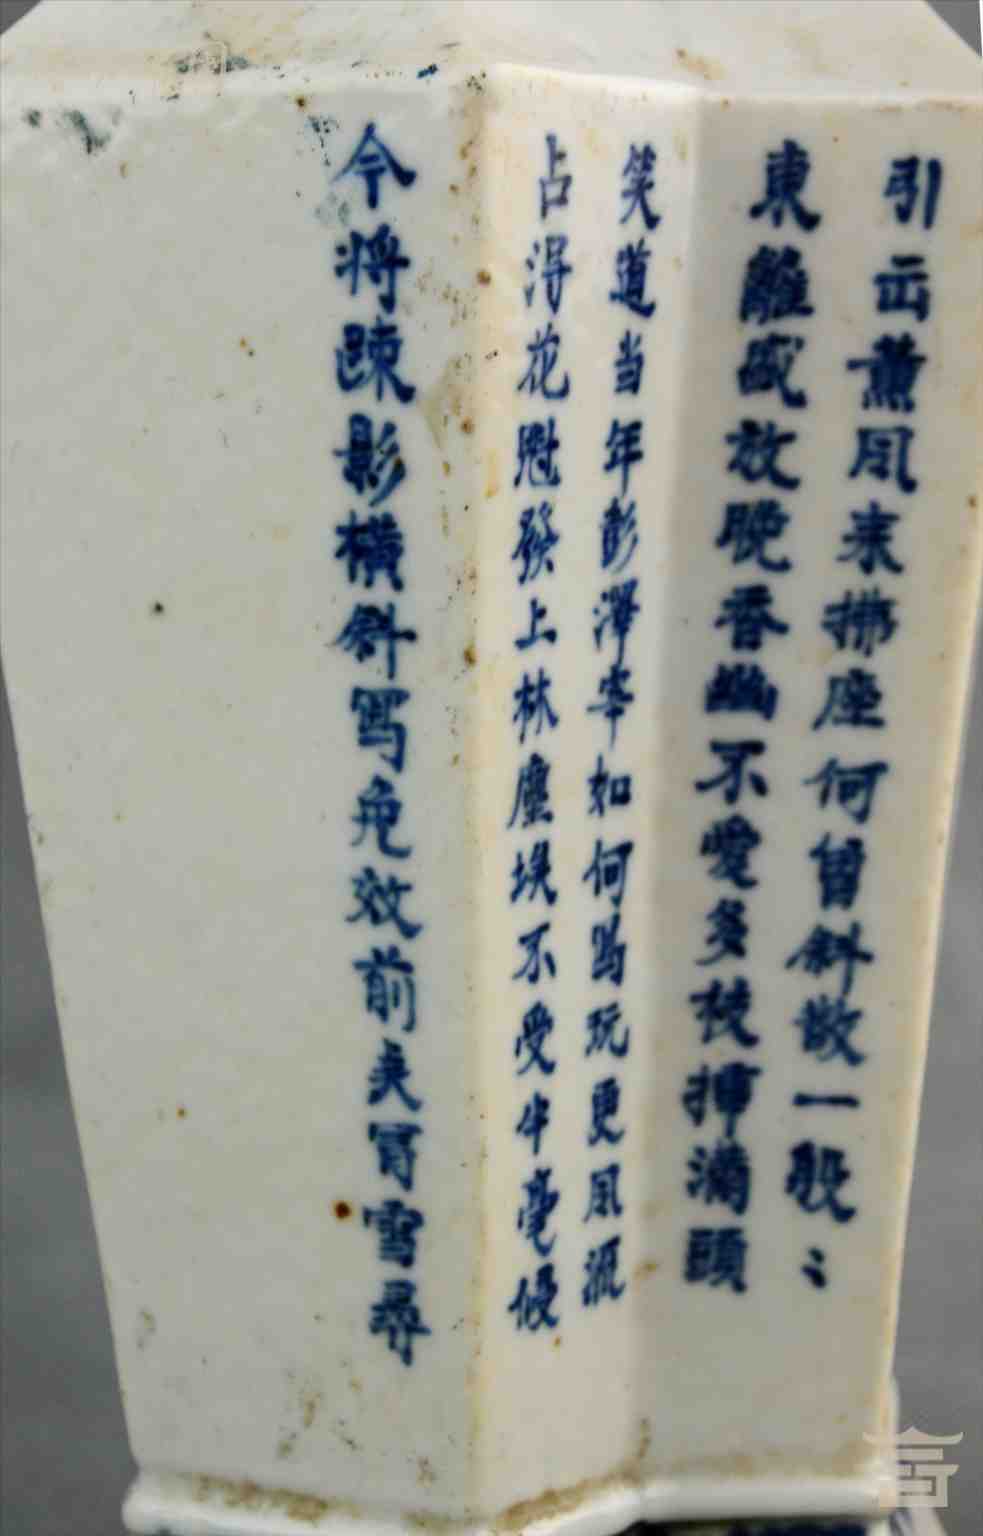 引出薰風来拂座何曾斜散一般〻
東籬盛放晚香幽不愛多枝揷滿頭
笑道当年彭澤宰如何為玩更風流
占得花魁發上林塵埃不受半毫侵
今將踈影橫斜写免效前夫冐雪尋